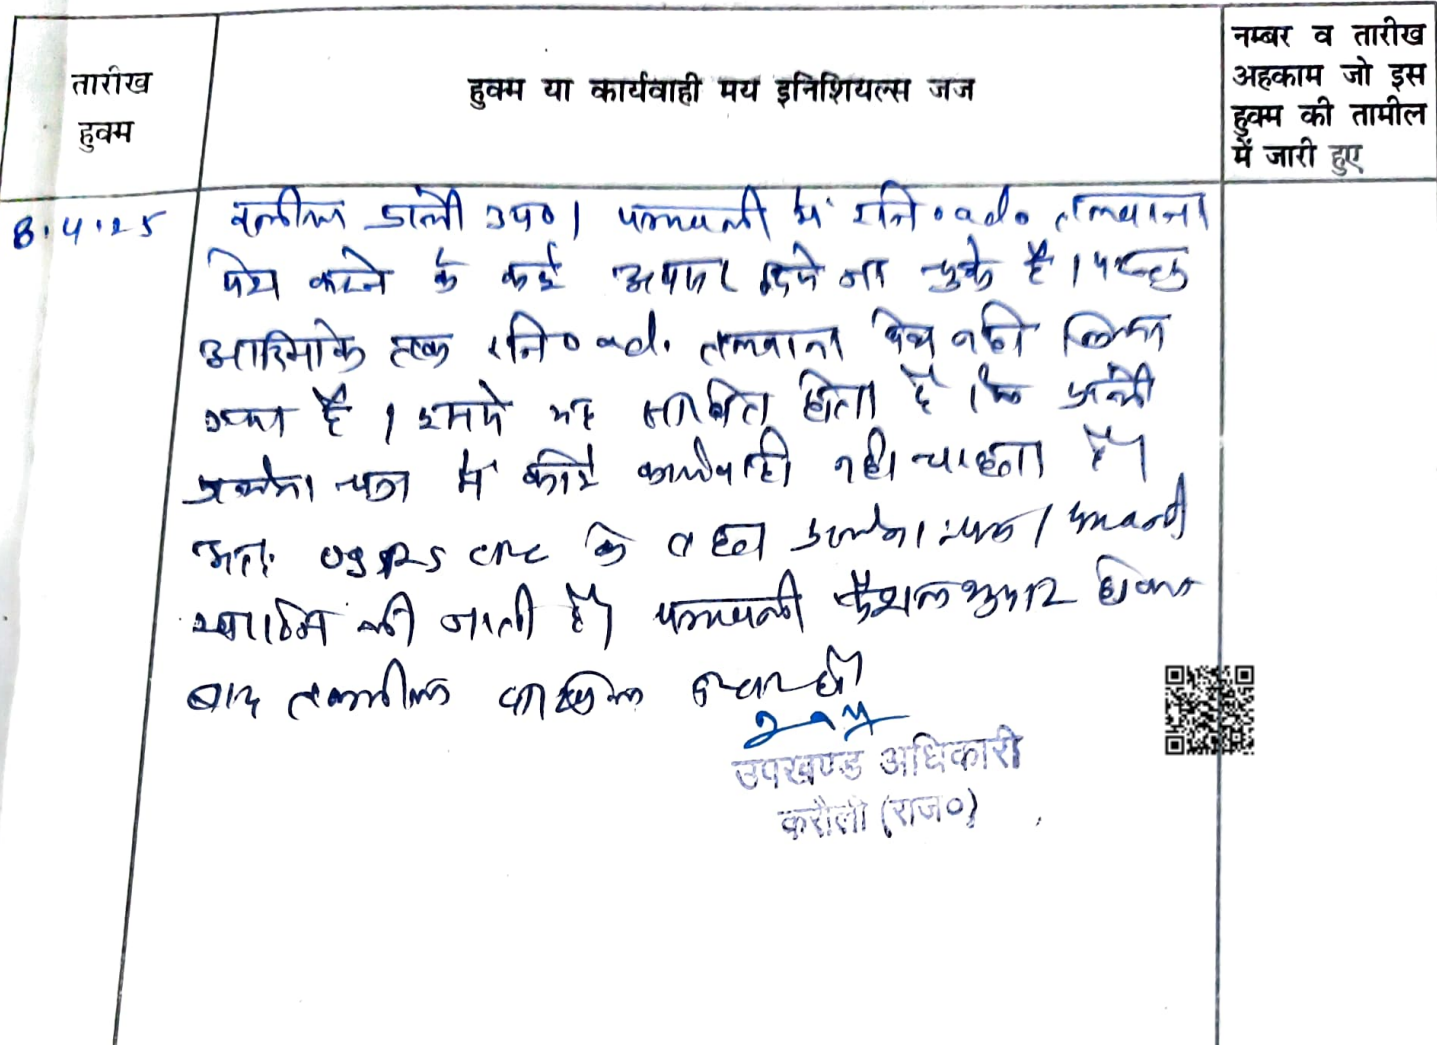 तारीख
हुक्म
हुक्म या कार्यवाही मय इनिशियल्स जज
नम्बर व तारीख
अहकाम जो इस
हुक्म की तामील
में जारी हुए
8.4.25
वकील प्रार्थी उप०। पत्रावली में रजि० ad. तलवाना
पेश करने के कई अवसर दिये जा चुके है। परन्तु
आदिनांक तक रजि० ad. तलवाना पेश नही किया
गया है। इससे यह साबित होता है कि प्रार्थी
प्रार्थना पत्र में कोई कार्यवाही नही चाहता है।
अतः CPC के तहत प्रार्थना पत्र / प्रार्थी
खारिज की जाती है। पत्रावली फैसल शुमार होकर
बाद तकमील दाखिल दफ्तर हो।
उपखण्ड अधिकारी
करौली (राज०)